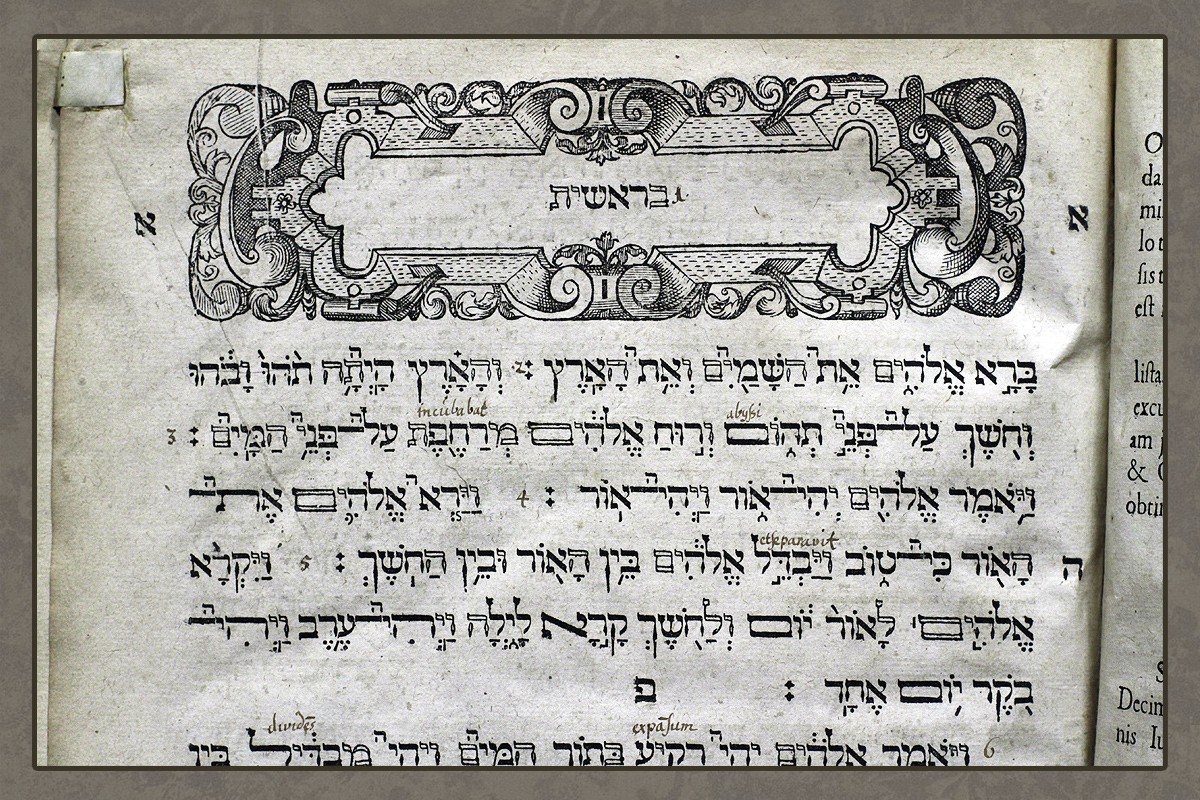 בראשית
א א
בָּרָא אֱלֹהִים אֵת הַשָּׁמַיִם וְאֵת הָאָרֶץ 2: וְהָאָרֶץ הָיְתָה תֹהוּ וָבֹהוּ
incubabat abyssi
וְחֹשֶׁךְ עַל־פְּנֵי תְהוֹם וְרוּחַ אֱלֹהִים מְרַחֶפֶת עַל־פְּנֵי הַמָּיִם : 3
וַיֹּאמֶר אֱלֹהִים יְהִי־אוֹר וַיְהִי־אוֹר : 4 וַיַּרְא אֱלֹהִים אֶת־
הָאוֹר כִּי־טוֹב וַיַּבְדֵּל אֱלֹהִים בֵּין הָאוֹר וּבֵין הַחֹשֶׁךְ : 5 וַיִּקְרָא
ה
אֱלֹהִים לָאוֹר יוֹם וְלַחֹשֶׁךְ קָרָא לָיְלָה וַיְהִי־עֶרֶב וַיְהִי־
בֹקֶר יוֹם אֶחָד : פ
expāsum
6 וַיֹּאמֶר אֱלֹהִים יְהִי רָקִיעַ בְּתוֹךְ הַמָּיִם וִיהִי מַבְדִּיל בֵּין
est
am
&
Decim
nis